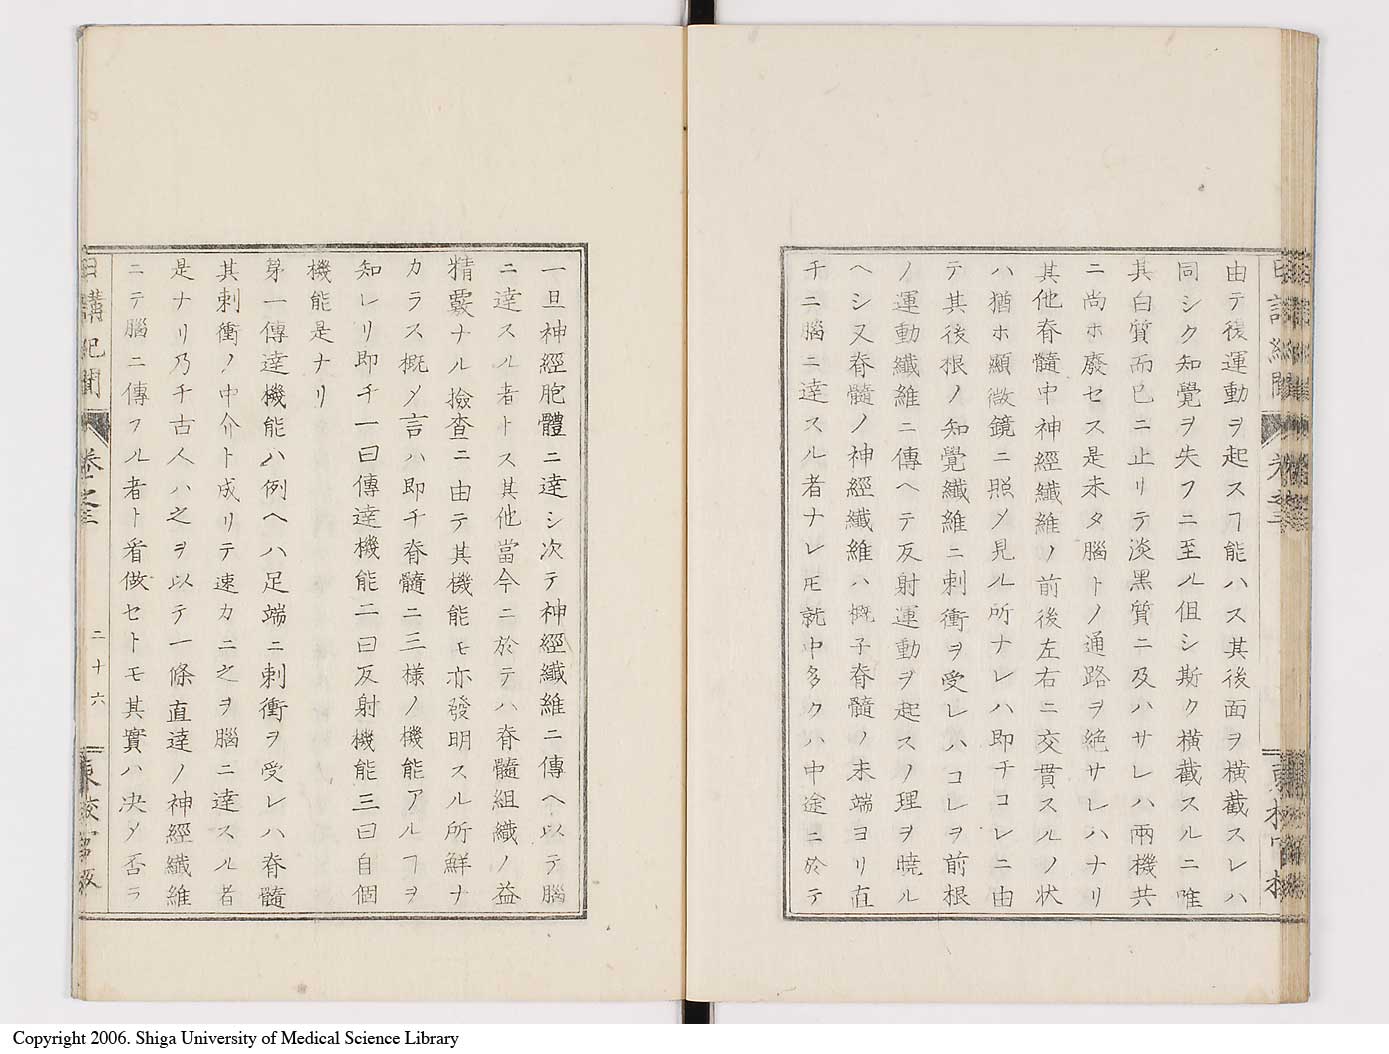 由テ後運動ヲ起スヿ能ハス其後面ヲ横截スレハ
同シク知覺ヲ失フニ至ル但シ斯ク横截スルニ唯
其白質而已ニ止リテ淡黑質ニ及ハサレハ兩機共
ニ尚ホ廢セス是未タ腦トノ通路ヲ絶サレハナリ
其他脊髓中神經纖維ノ前後左右ニ交貫スルノ状
ハ猶ホ顯微鏡ニ照メ見ル所ナレハ即チコレニ由
テ其後根ノ知覺纖維ニ刺衝ヲ受レハコレヲ前根
ノ運動纖維ニ傳ヘテ反射運動ヲ起スノ理ヲ曉ル
ヘシ又脊髓ノ神經纖維ハ概子脊髓ノ末端ヨリ直
チニ腦ニ達スル者ナレ𪜈就中多クハ中途ニ於テ
一旦神經胞體ニ達シ次テ神經纖維ニ傳ヘ以テ腦
ニ達スル者トス其他當今ニ於テハ脊髓組織ノ益
精覈ナル撿査ニ由テ其機能モ亦發明スル所鮮ナ
カラス概メ言ハ即チ脊髓ニ三様ノ機能アルヿヲ
知レリ即チ一曰傳達機能二曰反射機能三曰自個
機能是ナリ
苐一傳達機能ハ例ヘハ足端ニ刺衝ヲ受レハ脊髓
其刺衝ノ中介ト成リテ速カニ之ヲ腦ニ達スル者
是ナリ乃チ古人ハ之ヲ以テ一條直達ノ神經纖維
ニテ腦ニ傳フル者ト看做セトモ其實ハ决メ否ラ
日講紀聞 卷之三 二十六
Copyright 2006. Shiga University of Medical Science Library